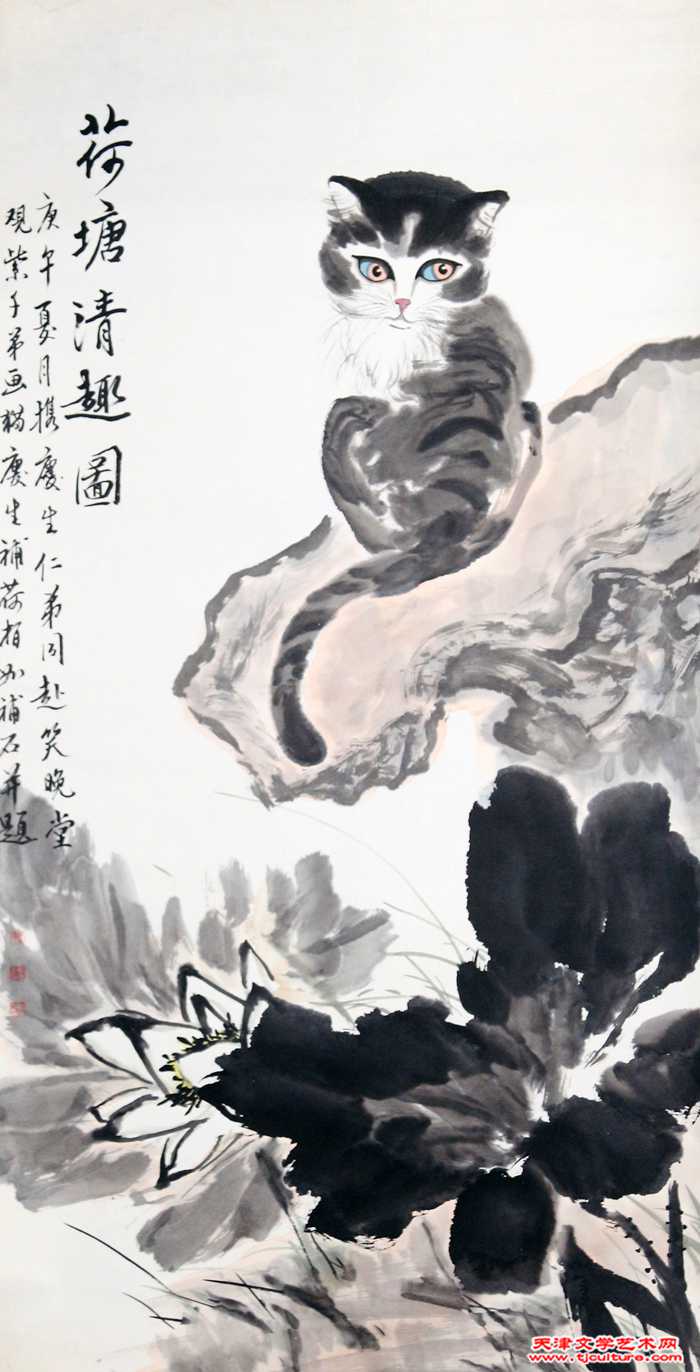 荷塘清趣圖
庚午夏月携慶生仁弟同赴笑晚堂
观紫千弟画猫慶生補荷栢如補石并題
天津文学艺术网
www.tjculture.com